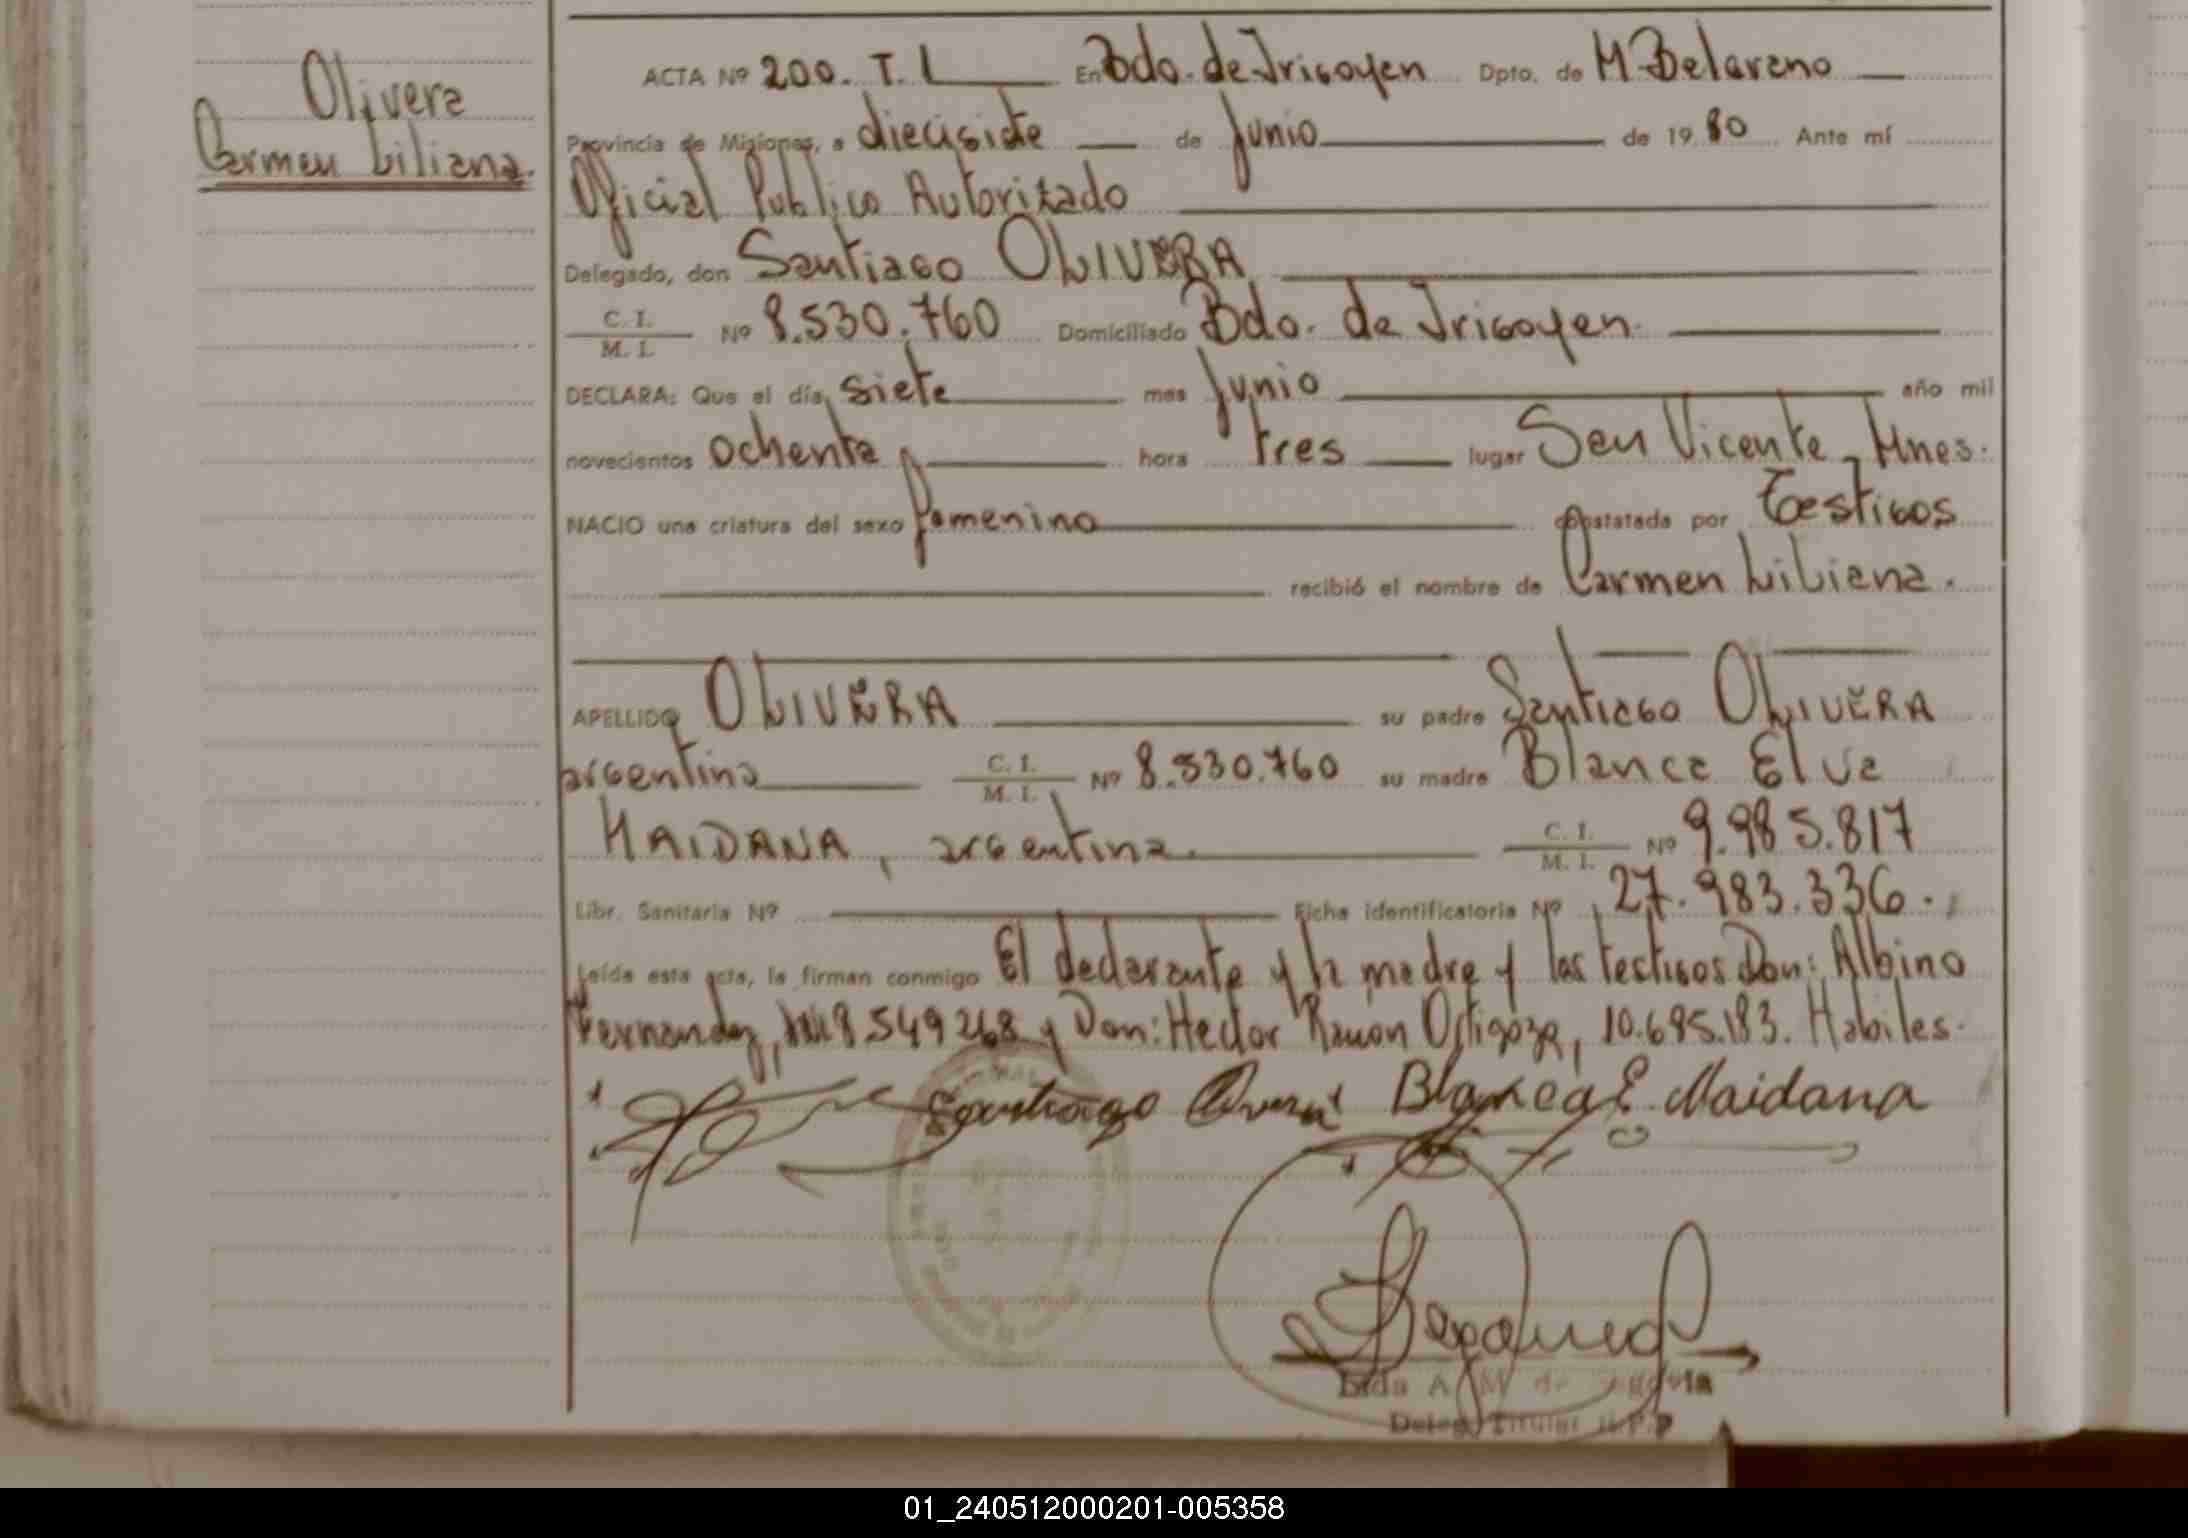 Olivera
Carmen Liliana.
ACTA Nº 200. T. I En Bdo. de Irigoyen Dpto. de M. Belgrano
Provincia de Misiones, a diecisiete de Junio de 1980 Ante mí
Oficial Publico Autorizado
Delegado, don Santiago OLIVERA
C. I. / M. I. Nº 8.530.760 Domiciliado Bdo. de Irigoyen.
DECLARA: Que el día siete mes Junio año mil
novecientos ochenta hora tres lugar San Vicente - Mnes.
NACIO una criatura del sexo femenino constatada por Testigos
recibió el nombre de Carmen Liliana.
APELLIDO OLIVERA su padre Santiago OLIVERA
argentino C. I. / M. I. Nº 8.530.760 su madre Blanca Elva
MAIDANA, argentina. C. I. / M. I. Nº 9.985.817
Libr. Sanitaria Nº Ficha identificatoria Nº 27.983.336.
Leída esta acta, la firman conmigo El declarante y la madre y los testigos Don: Albino
Fernandez, MI 8.549.268 y Don: Hector Ramon Ortigoza, 10.695.183. Habiles.
Santiago Blanca E. Maidana
A. M. de Segovia
Deleg. Titular R.P.P
01_240512000201-005358